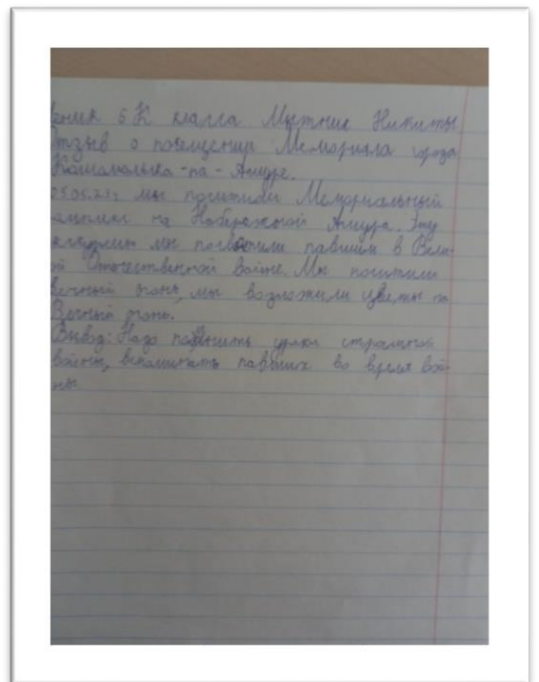 ученик 6 К класса Мытник Никиты
Отзыв о посещении Мемориала города
Комсомольска-на-Амуре.
05.05.23г мы посетили Мемориальный
комплекс на Набережной Амура. Эту
экскурсию мы посвятили павшим в Вели-
ой Отечественной войне. Мы посетили
вечный огонь, мы возложили цветы на
Вечный огонь.
Вывод: Надо помнить уроки страшной
войны, вспоминать павших во время вой-
ны.